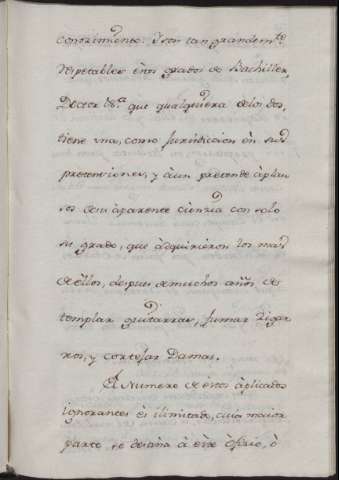 conosimiento: Y son tan grandemte
respetables èstos grados de Bachiller,
Doctor &ca que qualquiera de los dos,
tiene una, como Jurisdiccion èn sus
pretenciones, y àun pretende àplau
sos con àparente ciencia con solo
su grado, que adquirieron los mas
de èllos, despues de muchos años de
templar guitarras, fumar Sigar
ros, y cortejar Damas.
El Numero de èstos àplicados
ignorantes ès ilimitado, cuia maior
parte, se à èste òficio, ò